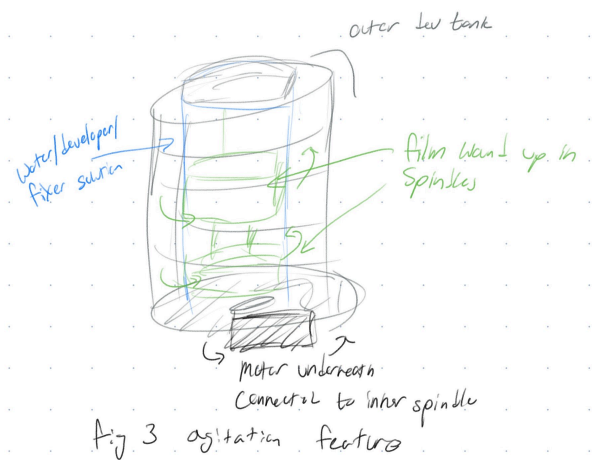 outer dev tank
water/developer/
fixer solution
film wound up in
spindles
motor underneath
connected to inner spindle
fig 3 agitation feature